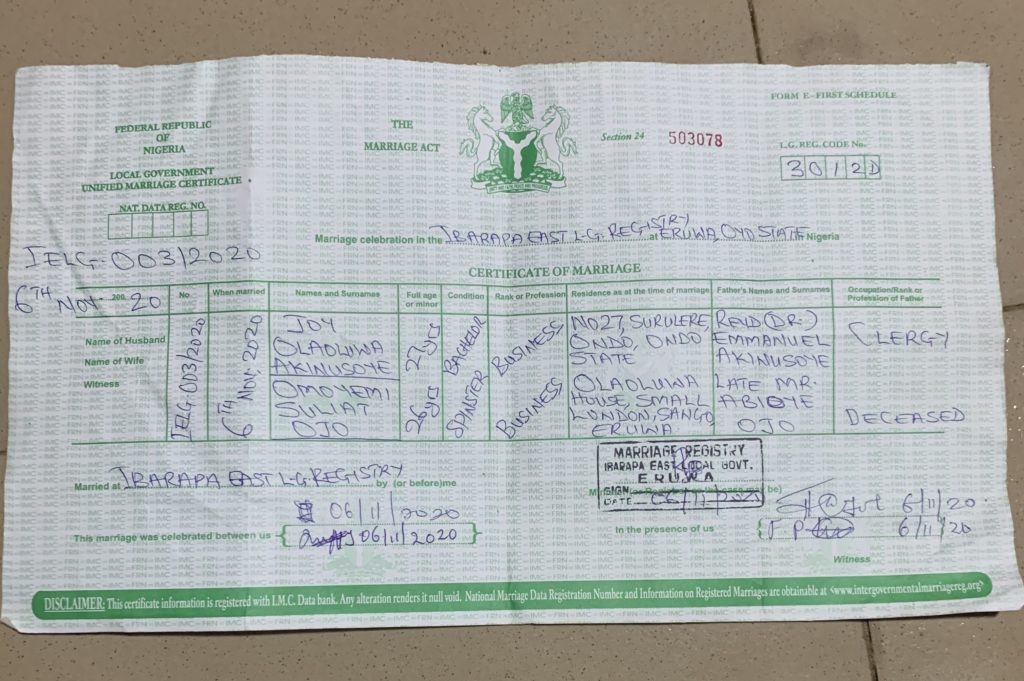 FORM E - FIRST SCHEDULE
FEDERAL REPUBLIC
OF
NIGERIA
LOCAL GOVERNMENT
UNIFIED MARRIAGE CERTIFICATE
NAT. DATA REG. NO.
THE
MARRIAGE ACT
Section 24
503078
L.G. REG. CODE No.
3012D
IELG. 003/2020
Marriage celebration in the IBARAPA EAST L.G. REGISTRY at ERUWA, OYO STATE Nigeria
CERTIFICATE OF MARRIAGE
6TH NOV. 200. 20
No.
When married
Names and Surnames
Full age or minor
Condition
Rank or Profession
Residence as at the time of marriage
Father's Names and Surnames
Occupation/Rank or Profession of Father
Name of Husband
Name of Wife
Witness
IELG. 003/2020
6TH NOV, 2020
JOY
OLAOLUWA
AKINUSOYE
27 yrs
BACHELOR
BUSINESS
NO 27, SURULERE,
ONDO, ONDO
STATE
REVD (DR.)
EMMANUEL
AKINUSOYE
CLERGY
OMOYEMI
SULIAT
OJO
26 yrs
SPINSTER
BUSINESS
OLAOLUWA
HOUSE, SMALL
LONDON, SANGO
ERUWA
LATE MR.
ABIOYE
OJO
DECEASED
MARRIAGE REGISTRY
IBARAPA EAST LOCAL GOVT.
ERUWA
SIGN
DATE
Married at IBARAPA EAST L.G. REGISTRY by (or before) me
06/11/2020
6/11/20
This marriage was celebrated between us 06/11/2020
In the presence of us
6/11/20
Witness
DISCLAIMER: This certificate information is registered with I.M.C. Data bank. Any alteration renders it null void. National Marriage Data Registration Number and Information on Registered Marriages are obtainable at <www.intergovernmentalmarriagereg.org>